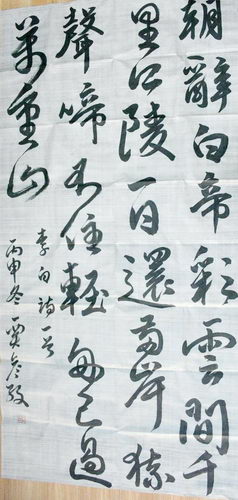 朝辭白帝彩雲間千
里江陵一日還兩岸猿
聲啼不住輕舟已過
萬重山
李白詩一首
丙申冬